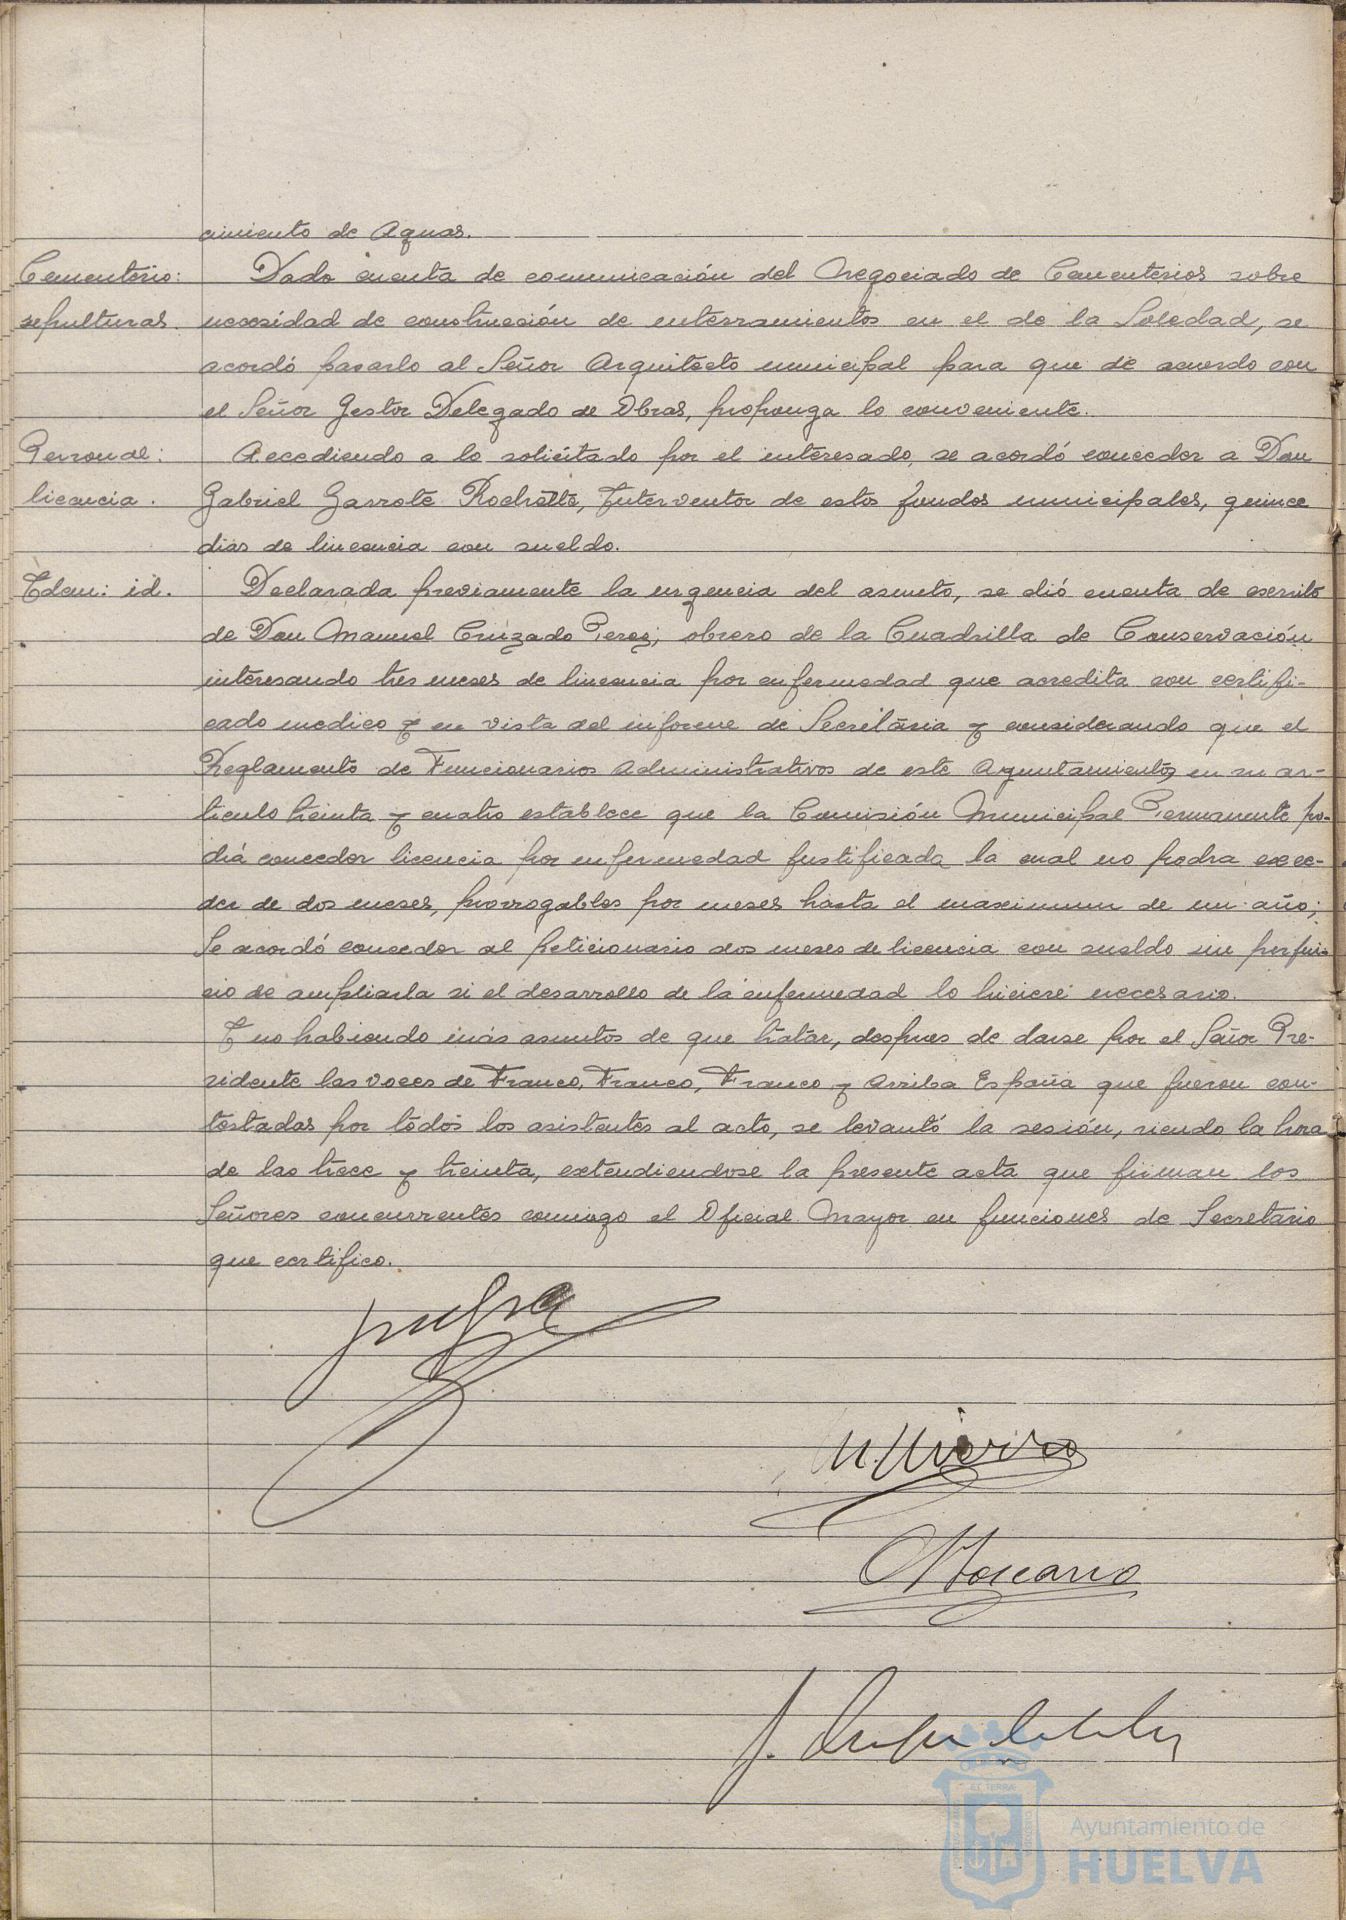 cimiento de Aguas.
Cementerio: Dada cuenta de comunicación del Negociado de Cementerios sobre
sepulturas. necesidad de construcción de enterramientos en el de la Soledad, se
acordó pasarlo al Señor Arquitecto municipal para que de acuerdo con
el Señor Gestor Delegado de Obras, proponga lo conveniente.
Personal: Accediendo a lo solicitado por el interesado, se acordó conceder a Don
licencia. Gabriel Garrote Rochette, Interventor de estos fondos municipales, quince
dias de lincencia con sueldo.
Idem: id. Declarada previamente la urgencia del asunto, se dió cuenta de escrito
de Don Manuel Cruzado Perez, obrero de la Cuadrilla de Conservación
interesando tres meses de lincencia por enfermedad que acredita con certifi-
cado medico y en vista del informe de Secretaria y considerando que el
Reglamento de Funcionarios Administrativos de este Ayuntamiento, en su ar-
ticulo treinta y cuatro establece que la Comisión Municipal Permanente po-
drá conceder licencia por enfermedad justificada la cual no podra exce-
der de dos meses, prorrogables por meses hasta el maximum de un año;
Se acordó conceder al peticionario dos meses de licencia con sueldo sin perjui-
cio de ampliarla si el desarrollo de la enfermedad lo hiciere necesario.
Y no habiendo más asuntos de que tratar, despues de darse por el Señor Pre-
sidente las voces de Franco, Franco, Franco y Arriba España que fueron con-
testadas por todos los asistentes al acto, se levantó la sesión, siendo la hora
de las trece y treinta, extendiendose la presente acta que firman los
Señores concurrentes conmigo el Oficial Mayor en funciones de Secretario
que certifico.
ET TERRÆ
Ayuntamiento de
HUELVA